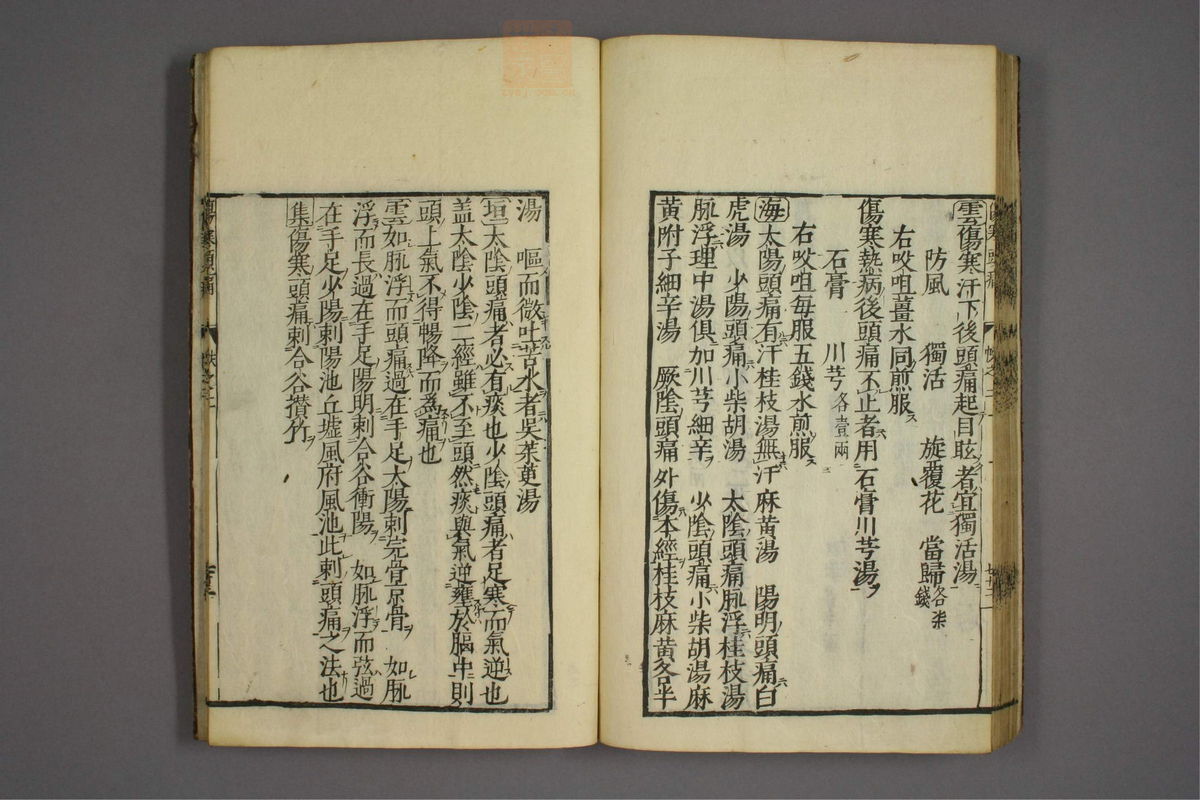 雲傷寒汗下後頭痛起目眩者宜獨活湯
防風　獨活　旋覆花　當歸各柒錢
右㕮咀薑水同煎服
傷寒熱病後頭痛不止者用石膏川芎湯
石膏　川芎各壹兩
右㕮咀每服五錢水煎服
海太陽頭痛有汗桂枝湯無汗麻黃湯　陽明頭痛白
虎湯　少陽頭痛小柴胡湯　太陰頭痛脉浮桂枝湯
脉浮理中湯俱加川芎細辛　少陰頭痛小柴胡湯麻
黃附子細辛湯　厥陰頭痛外傷本經桂枝麻黃各半
湯　嘔而微吐苦水者吳茱萸湯
垣太陰頭痛者必有痰也少陰頭痛者足寒而氣逆也
盖太陰少陰二經雖不至頭然痰與氣逆壅於膈中則
頭上氣不得暢降而為痛也
雲如脉浮而頭痛過在手足太陽刺完骨京骨　如脉
浮而長過在手足陽明刺合谷衝陽　如脉浮而弦過
在手足少陽刺陽池丘墟風府風池此刺頭痛之法也
集傷寒頭痛刺合谷攅竹